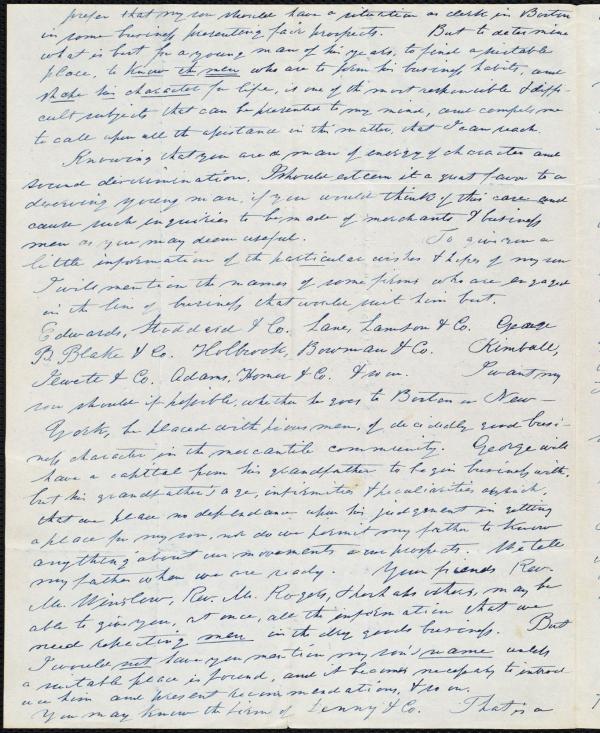 prefer that my son should have a situation as clerk in Boston
in some business presenting fair prospects. But to determine
what is best for a young man of his years, to find a suitable
place, to know the men who are to form his business habits, and
shape his character for life, is one of the most responsible & diffi-
cult subjects that can be presented to my mind, and compels me
to call upon all the assistance in this matter, that I can reach.
Knowing that you are a man of energy of character and
sound discrimination, I should esteem it a great favor to a
deserving young man, if you would think of this case and
cause such enquiries to be made of merchants & business
men as you may deem useful. To give you a
little information of the particular wishes & hopes of my son
I will mention the names of some firms who are engaged
in the line of business that would suit him best.
Edwards, Stoddard & Co. Lane, Lamson & Co. George
B. Blake & Co. Holbrook, Bowman & Co. Kimball,
Jewett & Co. Adams, Homer & Co. & so on. I want my
son should if possible, whether he goes to Boston or New-
York, be placed with pious men, of decidedly good busi-
ness character in the mercantile community. George will
have a capital from his grandfather to begin business with,
but his grandfather's age, infirmities & peculiarities are such,
that we place no dependance upon his judgement in getting
a place for my son, nor do we permit my father to know
anything about our movements or our prospects. We tell
my father when we are ready. Your friends Rev.
Mr. Winslow, Rev. Mr. Rogers, & perhaps others, may be
able to give you, at once, all the information that we
need respecting men in the dry goods business. But
I would not have you mention my son's name unless
a suitable place is found, and it becomes necessary to introd
uce him and present recommendations, & so on.
You may know the firm of Denny & Co. That is a